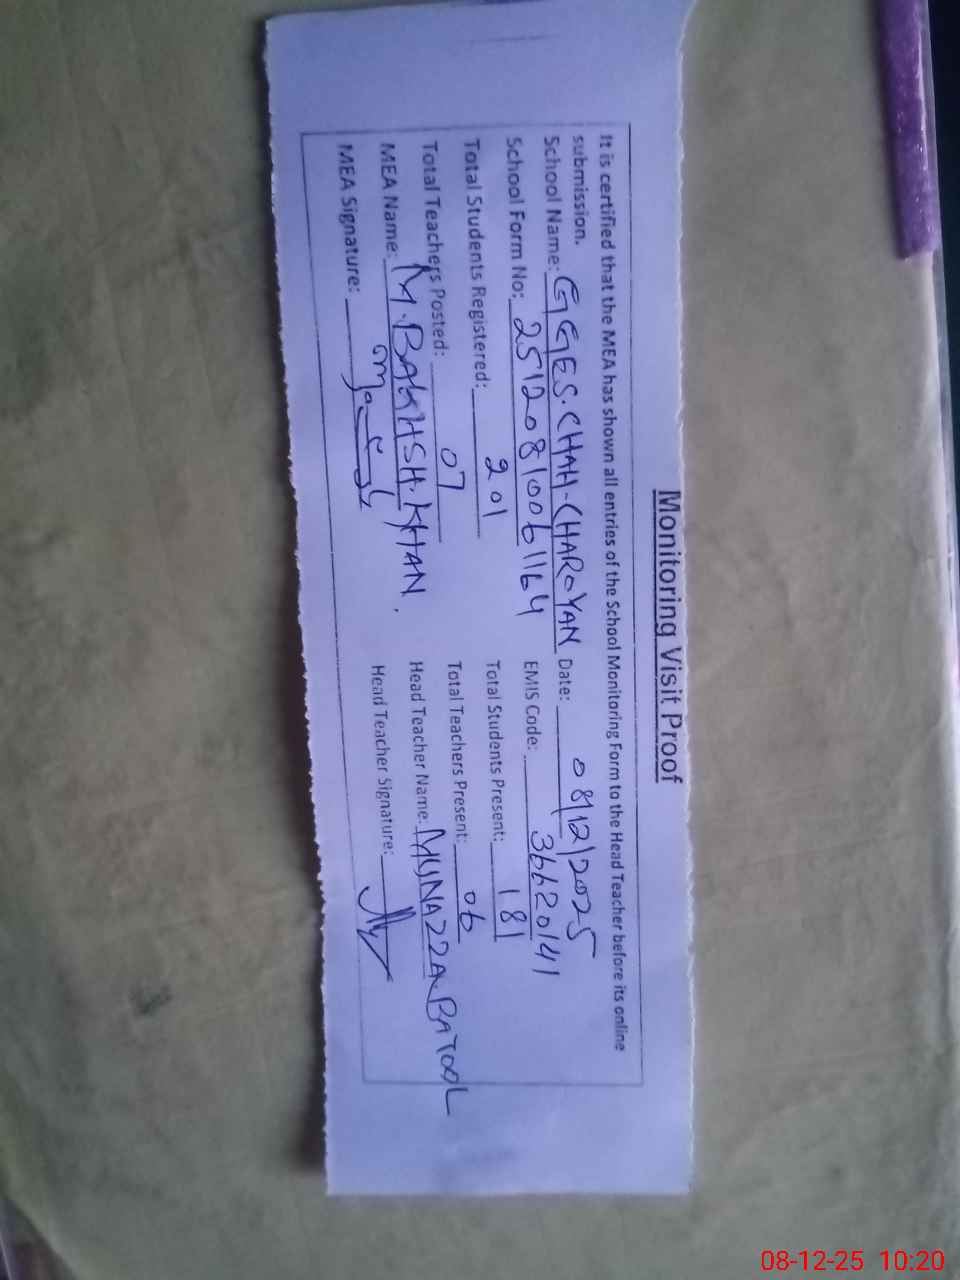 Monitoring Visit Proof
It is certified that the MEA has shown all entries of the School Monitoring Form to the Head Teacher before its online
submission.
School Name: GGES.CHAH-CHAROYAN Date: 08/12/2025
School Form No: 25120810061164 EMIS Code: 36620141
Total Students Registered: 201 Total Students Present: 181
Total Teachers Posted: 07 Total Teachers Present: 06
MEA Name: M.BAKHSH.KHAN. Head Teacher Name: MUNAZZA BATOOL
MEA Signature: Head Teacher Signature:
08-12-25 10:20